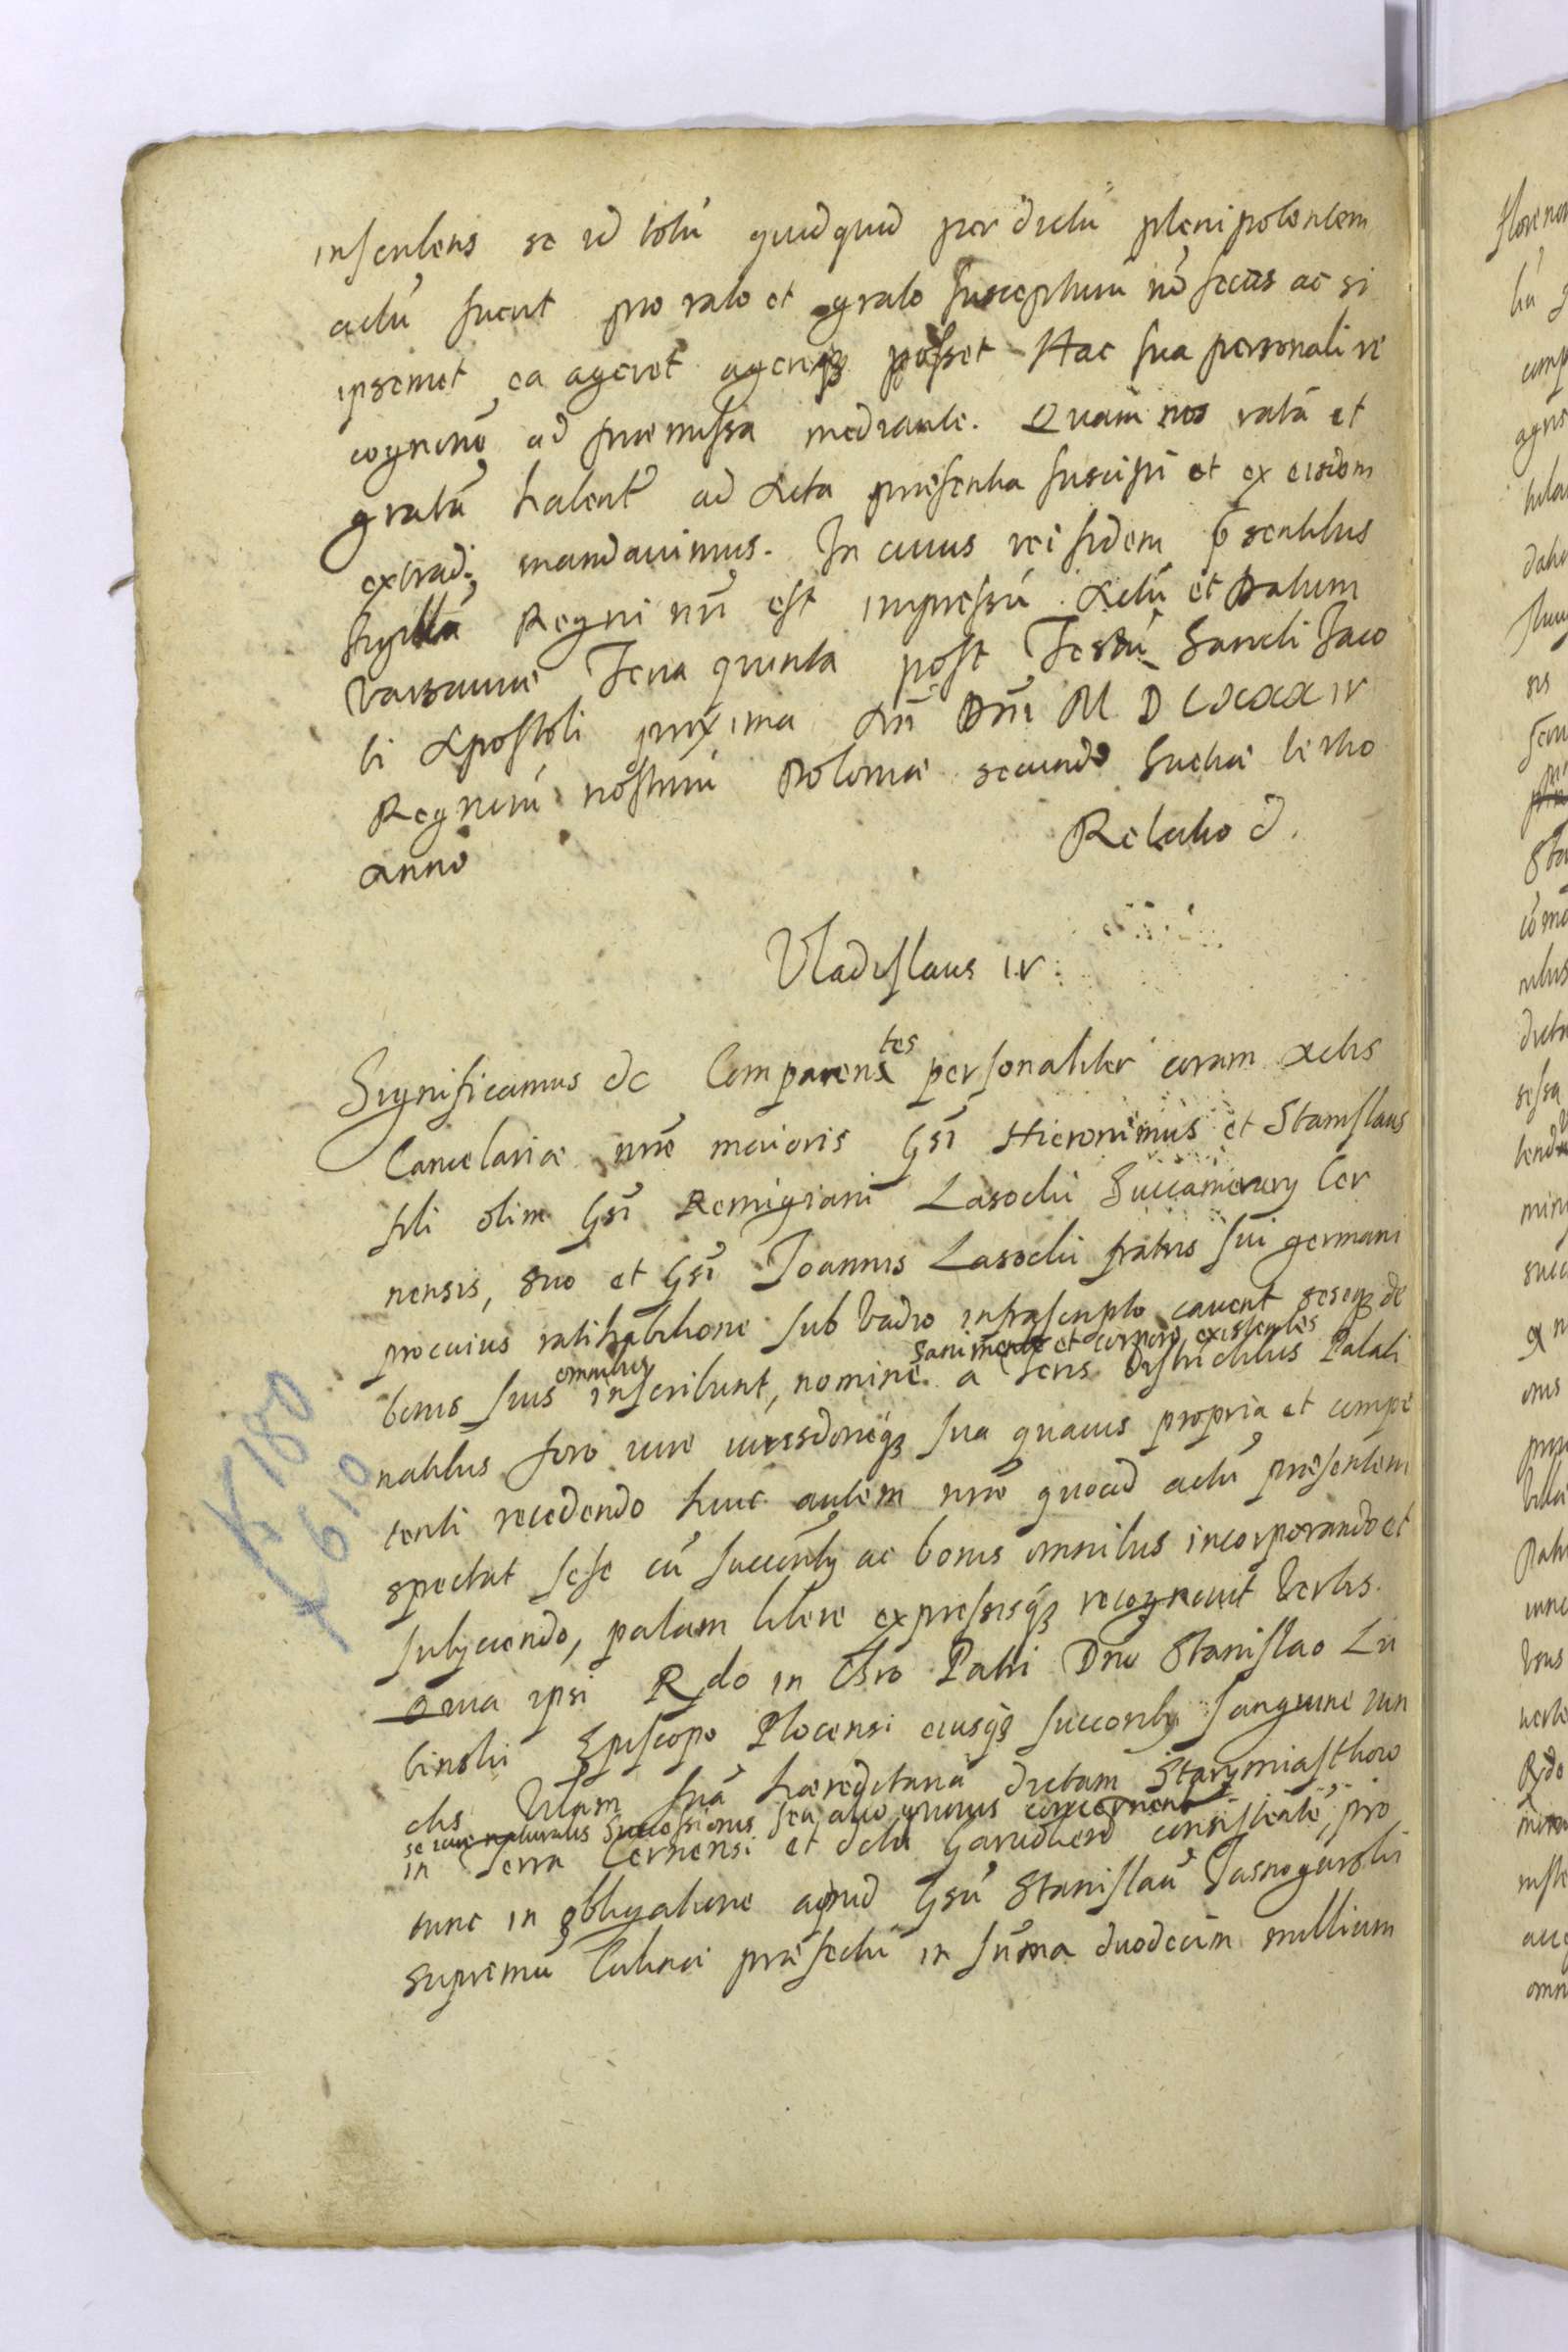 inserilens se id totũ quidquid per dictũ plenipotentem
actũ fuerit pro rato et grato suscepturũ nõ secus ac si
ipsemet ea ageret agereqȝ posset Hac sua personali re
cognitiõe ad præmissa mediante. Quam nos ratã et
gratã habent̃ ad Acta præsentia suscipi et ex eisdem
extradi mandavimus. In cuius rei fidem p̃sentibus
sigillũ Regni nr̃i est impressũ. Actũ et Datum
Varsaviæ Feria quinta post Festũ Sancti Jaco
bi Apostoli proxima An̄ Dn̄i M D CXXXIV
Regnorũ nostrorũ Poloniæ secundo Sueciæ tertio
anno
Relatio d.
Vladislaus IV.
Significamus dc Comparentes personaliter coram Actis
Cancelariæ nr̃æ maioris Gsĩ Hieronimus et Stanislaus
fili olim Gsĩ Remigiani Lasocki Succamerarij Cer
nensis, suo et Gsĩ Joannis Lasocki fratris sui germani
pro cuius ratihabitione sub vadio infrascripto cavent seseqȝ de
bonis suis omnibus inscribunt, nomine sani mente et corpore existentes a Terris districtibus Palati
natibus foro iure iurisdõneqȝ sua quavis propria et compe
tenti recedendo huic autem nr̃æ quoad actũ præsentem
spectat sese cũ succorib, ac bonis omnibus incorporando et
subijciendo, palam libere expressisqȝ recognovit verbis.
Quia ipsi Rdo in Chro Patri Dno Stanislao Lu
binski Episcopo Plocensi eiusqȝ succorib, sanguine iun
ctis Villam suã hæreditariã dictam Starymiasthow
se iure naturalis successionis seu alio quovis concernent
in Terra Cernensi et dctu Garvolien̄ consistentẽ, pro
tunc in obligatione apud Gsũ Stanislaũ Jasnogurski
supremũ Culinæ præfectũ in sum̃a duodecim millium
K 180
f 610